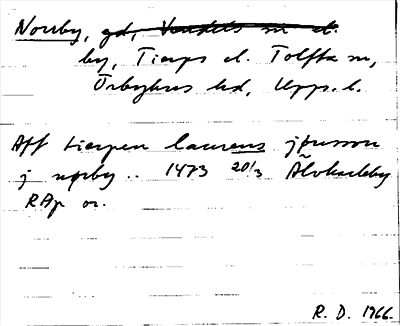 Norrby, gd, Vendels sn el.
by, Tierps el. Tolfta sn,
Örbyhus hd, Upps. l.
Aff tierpen laurens jönsson
j nørby .. 1473 20/3 Älvkarleby
RAp or.
R. D. 1966.